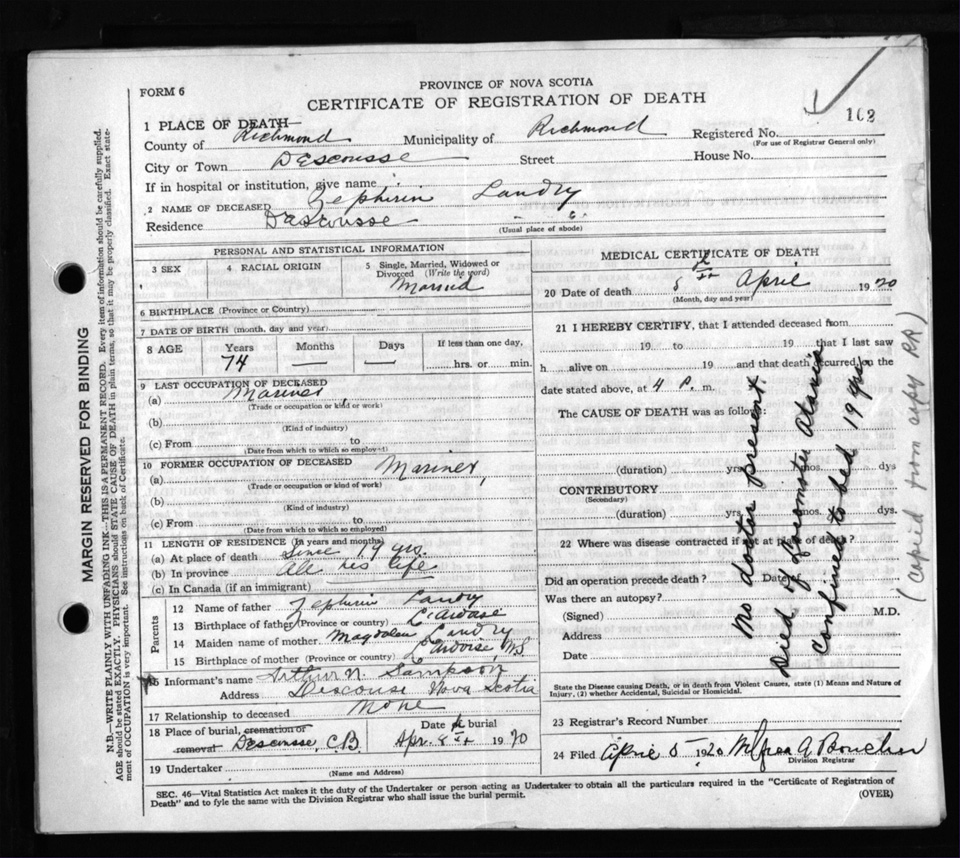 PROVINCE OF NOVA SCOTIA
FORM 6
CERTIFICATE OF REGISTRATION OF DEATH
162
1 PLACE OF DEATH—
County of Richmond Municipality of Richmond Registered No.
(For use of Registrar General only)
City or Town Descousse Street House No.
If in hospital or institution, give name
2 NAME OF DECEASED Zephirin Landry
Residence Descousse
(Usual place of abode)
PERSONAL AND STATISTICAL INFORMATION
3 SEX
4 RACIAL ORIGIN
5 Single, Married, Widowed or Divorced (Write the word)
Married
6 BIRTHPLACE (Province or Country)
7 DATE OF BIRTH (month, day and year)
8 AGE Years Months Days If less than one day,
74 — — hrs. or min.
9 LAST OCCUPATION OF DECEASED
(a) Mariner
(Trade or occupation or kind or work)
(b)
(Kind of industry)
(c) From to
(Date from which to which so employed)
10 FORMER OCCUPATION OF DECEASED
(a) Mariner
(Trade or occupation or kind or work)
(b)
(Kind of industry)
(c) From to
(Date from which to which so employed)
11 LENGTH OF RESIDENCE (In years and months)
(a) At place of death Since 19 yrs.
(b) In province all his life
(c) In Canada (if an immigrant)
Parents
12 Name of father Zephirin Landry
13 Birthplace of father (Province or country)
14 Maiden name of mother Magdalen Landry
15 Birthplace of mother (Province or country) N.S.
16 Informant's name Arthur N. Sampson
Address Descouse Nova Scotia
17 Relationship to deceased None
18 Place of burial, cremation or removal Descousse C.B. Date of burial Apr. 8th 1920
19 Undertaker
(Name and Address)
MEDICAL CERTIFICATE OF DEATH
20 Date of death 5th April 1920
(Month, day and year)
21 I HEREBY CERTIFY, that I attended deceased from
19 to 19 that I last saw
h alive on 19 and that death occurred on the
date stated above, at 4 P. m.
The CAUSE OF DEATH was as follows:
(duration) yrs. mos. dys
CONTRIBUTORY
(Secondary)
(duration) yrs. mos. dys.
22 Where was disease contracted if not at place of death?
Did an operation precede death? Date
Was there an autopsy?
(Signed) M.D.
Address
Date
No doctor present.
Died of Locomotor Ataxia
confined to bed 19 yrs.
(copied from copy RR)
State the Disease causing Death, or in death from Violent Causes, state (1) Means and Nature of
Injury, (2) whether Accidental, Suicidal or Homicidal.
23 Registrar's Record Number
24 Filed April 5 1920
Division Registrar
SEC. 46—Vital Statistics Act makes it the duty of the Undertaker or person acting as Undertaker to obtain all the particulars required in the "Certificate of Registration of
Death" and to fyle the same with the Division Registrar who shall issue the burial permit.
(OVER)
MARGIN RESERVED FOR BINDING
N.B.—WRITE PLAINLY WITH UNFADING INK—THIS IS A PERMANENT RECORD. Every item of information should be carefully supplied.
AGE should be stated EXACTLY. PHYSICIANS should STATE CAUSE OF DEATH in plain terms, so that it may be properly classified. Exact state-
ment of OCCUPATION is very important. See instructions on back of Certificate.